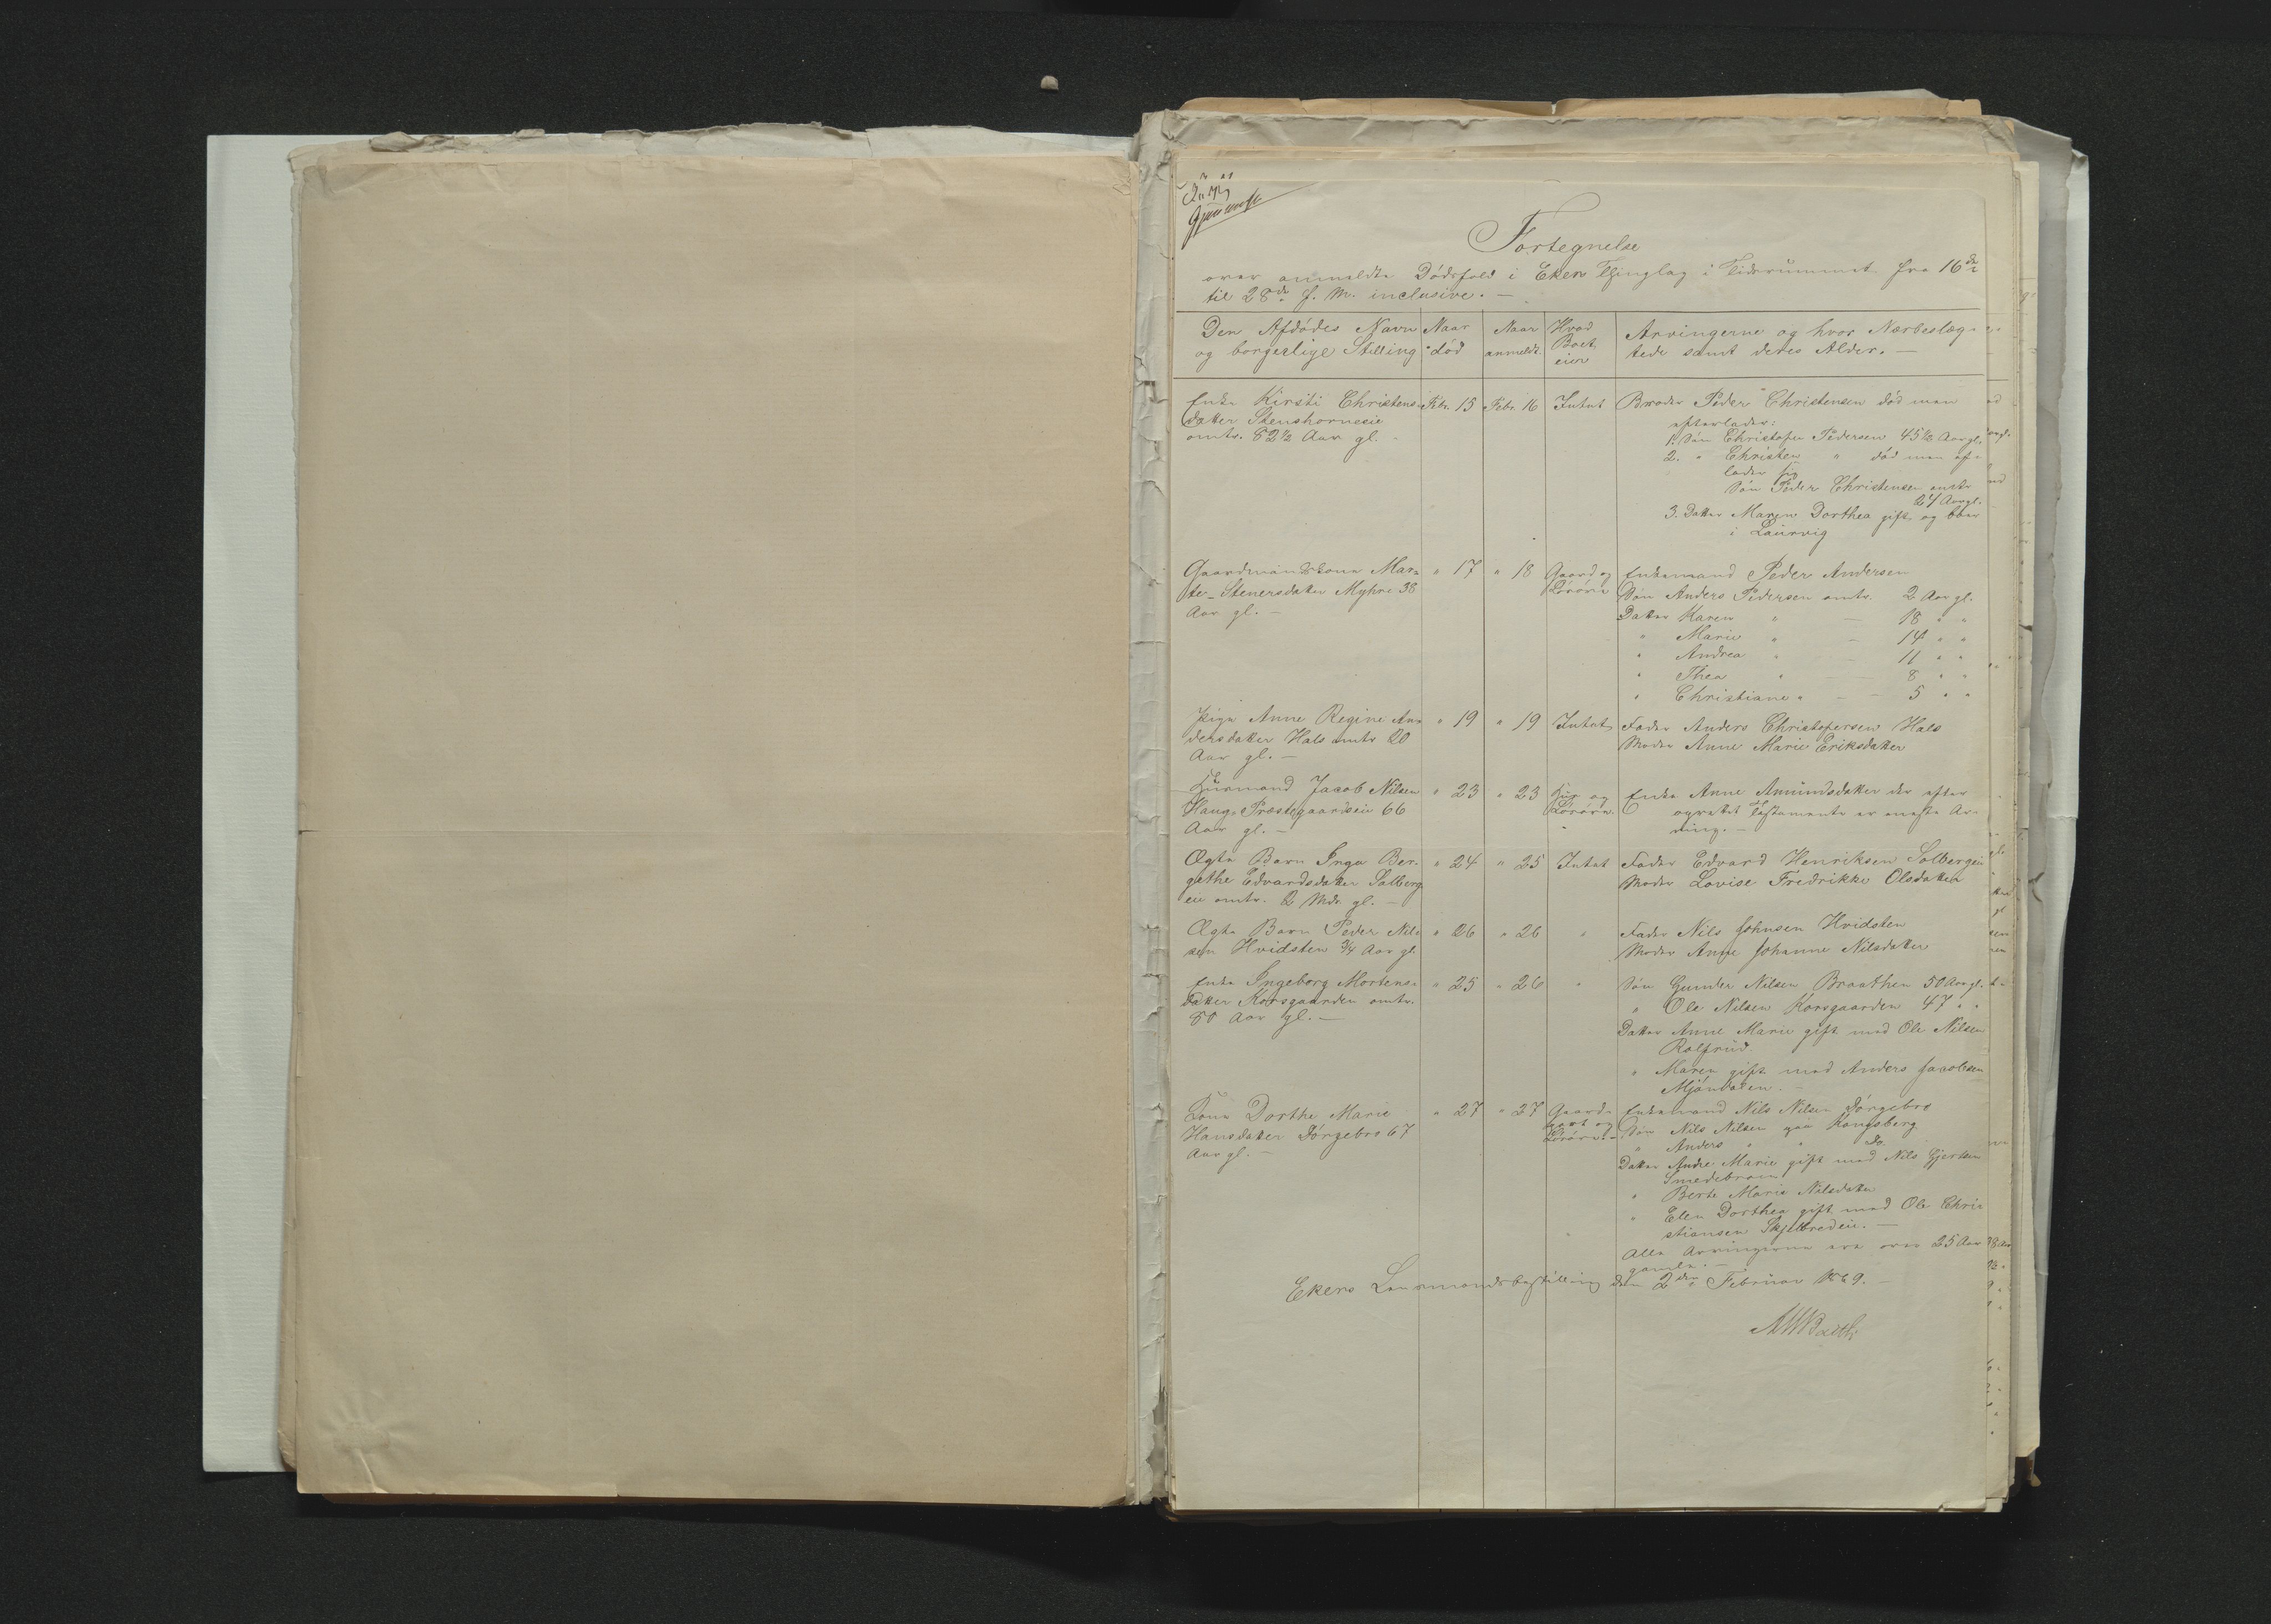 Fortegnelse
over anmeldte Dödsfald i Ekers Thinglag i Tidsrummet fra 16de
til 28de f. M. inclusive. —
Den Afdödes Navn
og borgerlige Stilling
Naar
död
Naar
anmeldt.
Hvad
Boet
eier
Arvingerne og hvor Nærbeslæg-
tede samt deres Alder. —
Enke Kirsti Christens-
datter Stenshorneeie
omtr. 82½ Aar gl. -
Febr. 15
Febr. 16
Intet
Broder Peder Christensen död men
efterlader:
1. Sön Christofer Pedersen 45½ Aar gl.
2. " Christen " död men ef-
lader sig
Sön Peder Christensen omtr
24 Aar gl.
3. Datter Maren Dorthea gift og boer
i Laurvig
Gaardmandskone Mar-
the Stenersdatter Myhre 38
Aar gl. —
" 17
" 18
Gaard og
Lösöre
Enkemand Peder Andersen
Sön Anders Pedersen omtr. 2 Aar gl.
Datter Karen " — 18 " "
" Marie " — 14 " "
" Andrea " — 11 " "
" Thea " — 8 " "
" Christiane " — 5 " "
Pige Anne Regine An-
dersdatter Hals omtr 20
Aar gl. —
" 19
" 19
Intet
Fader Anders Christofersen Hals
Moder Anne Marie Eriksdatter
Husmand Jacob Nilsen
Haugs Præstegaardseie 66
Aar gl. —
" 23
" 23
Hus og
Lösöre.
Enke Anne Amundsdatter der efter
oprettet Testamente er eneste Ar-
ving. —
Ægte Barn Inga Ber-
gethe Edvardsdatter Solberg
eie omtr. 2 Mdr. gl. —
" 24
" 25
Intet
Fader Edvard Henriksen Solbergeie
Moder Lovise Fredrikke Olsdatter
Ægte Barn Peder Nil-
sen Hvidsten ¾ Aar gl.
" 26
" 26
"
Fader Nils Johnsen Hvidsten
Moder Anne Johanne Nilsdatter
Enke Ingeborg Mortens-
datter Korsgaarden omtr.
80 Aar gl. —
" 25
" 26
"
Sön Gunder Nilsen Braathen 50 Aar gl.
" Ole Nilsen Korsgaarden 47 " "
Datter Anne Marie gift med Ole Nilsen
Rolfrud.
" Maren gift med Anders Jacobsen
Mjöndalen. —
Kone Dorthe Marie
Hansdatter Dörgebro 67
Aar gl. —
" 27
" 27
Gaard-
part og
Lösöre —
Enkemand Nils Nilsen Dörgebro
Sön Nils Nilsen paa Kongsberg
" Anders " " do.
Datter Andre Marie gift med Nils Gjertsen
Smedebraaten
" Berte Marie Nilsdatter
" Elen Dorthea gift med Ole Chri-
stiansen Skjelbredeie. —
Alle Arvingerne ere over 25 Aar
gamle. —
Ekers Lensmandsbestilling den 2den Februar 1869. —